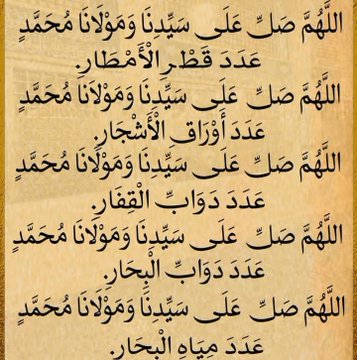 اللَّهُمَّ صَلِّ عَلَى سَيِّدِنَا وَمَوْلَانَا مُحَمَّدٍ
عَدَدَ قَطْرِ الْأَمْطَارِ.
اللَّهُمَّ صَلِّ عَلَى سَيِّدِنَا وَمَوْلَانَا مُحَمَّدٍ
عَدَدَ أَوْرَاقِ الْأَشْجَارِ.
اللَّهُمَّ صَلِّ عَلَى سَيِّدِنَا وَمَوْلَانَا مُحَمَّدٍ
عَدَدَ دَوَابِّ الْقِفَارِ.
اللَّهُمَّ صَلِّ عَلَى سَيِّدِنَا وَمَوْلَانَا مُحَمَّدٍ
عَدَدَ دَوَابِّ الْبِحَارِ.
اللَّهُمَّ صَلِّ عَلَى سَيِّدِنَا وَمَوْلَانَا مُحَمَّدٍ
عَدَدَ مِيَاهِ الْبِحَارِ.